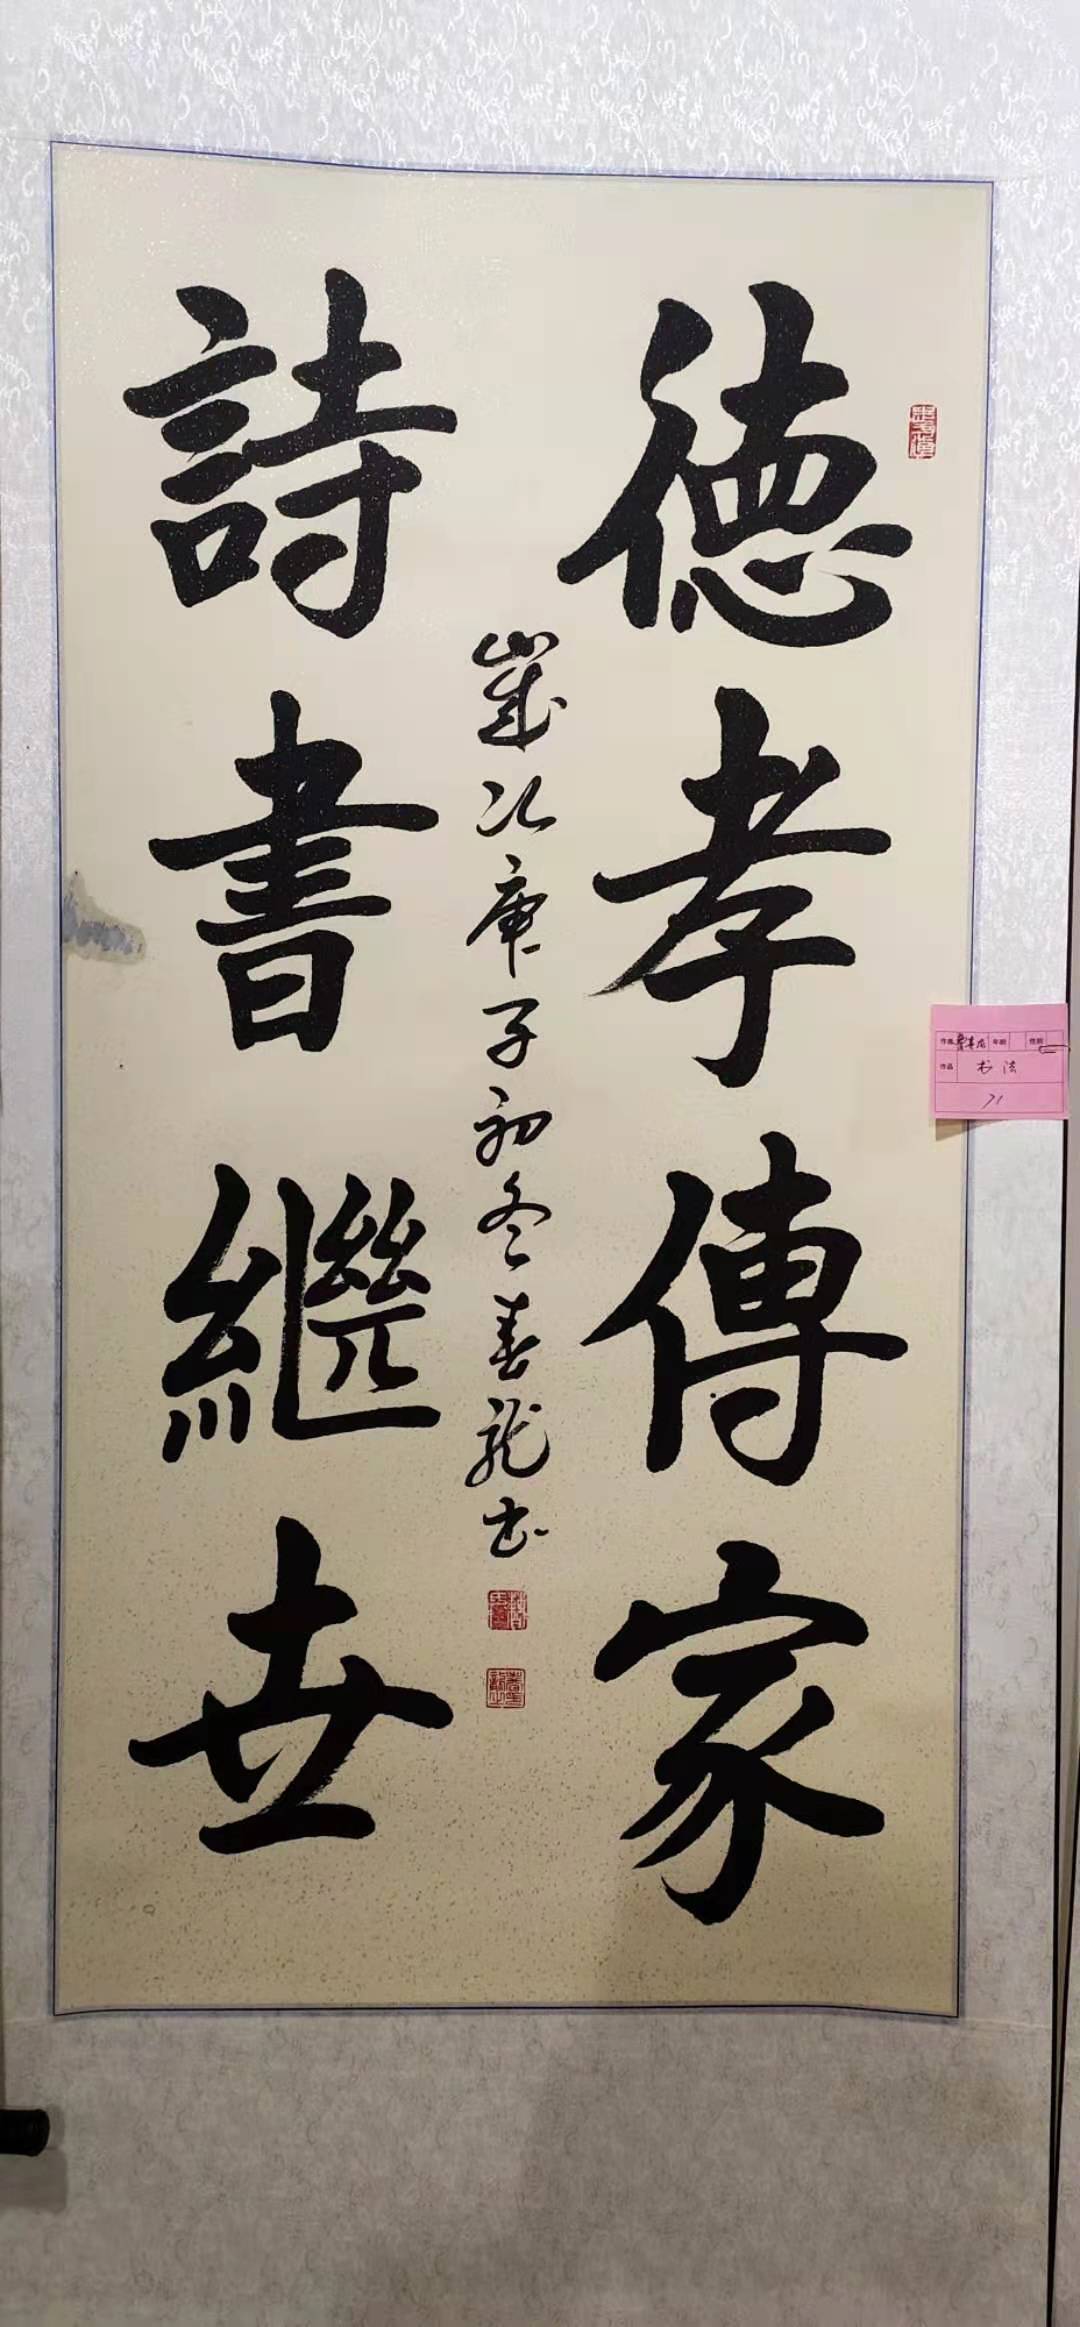 德孝傳家
詩書繼世
歲次庚子初冬春龍书
作者 春龙 年龄 性别
作品 书法
71